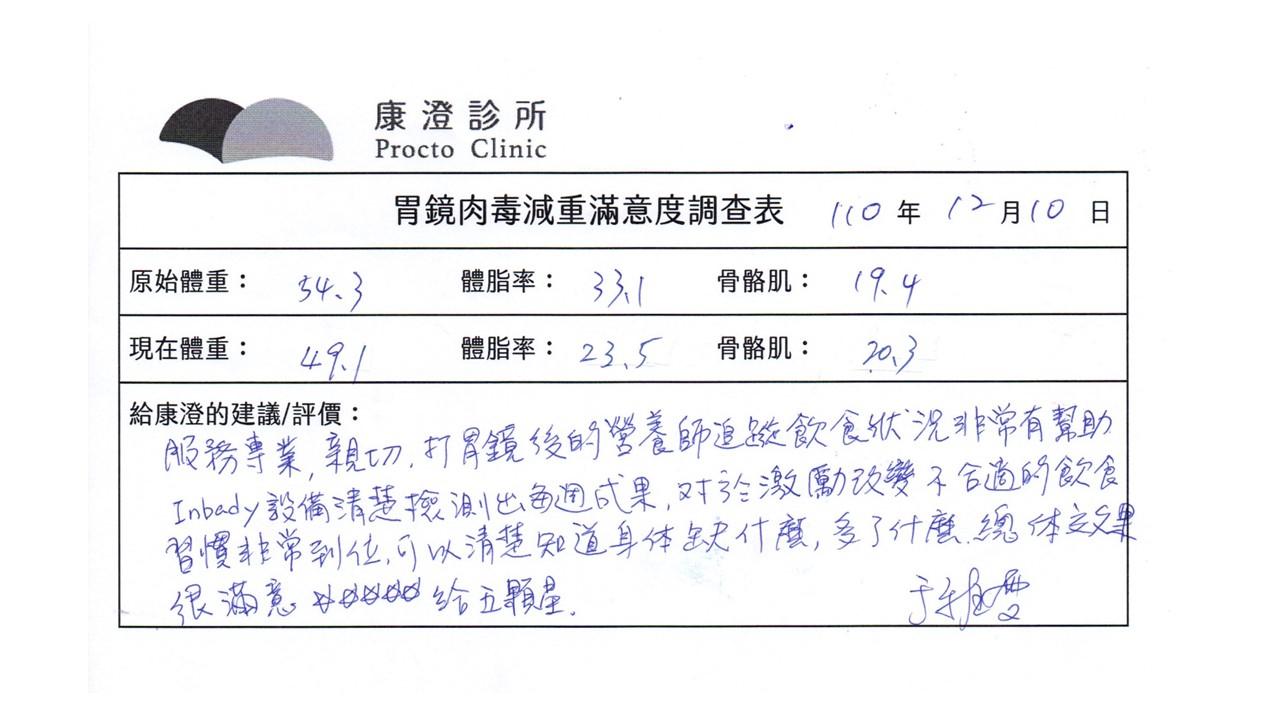 康澄診所
Procto Clinic
胃鏡肉毒減重滿意度調查表 110 年 12 月 10 日
原始體重： 54.3 體脂率： 33.1 骨骼肌： 19.4
現在體重： 49.1 體脂率： 23.5 骨骼肌： 20.3
給康澄的建議/評價：
服務專業,親切,打胃鏡後的營養師追蹤飲食狀況非常有幫助
Inbady設備清楚檢測出每週成果,对於激勵改變不合適的飲食
習慣非常到位,可以清楚知道身体缺什麼,多了什麼.總体效果
很滿意 ☆☆☆☆☆ 給五顆星.